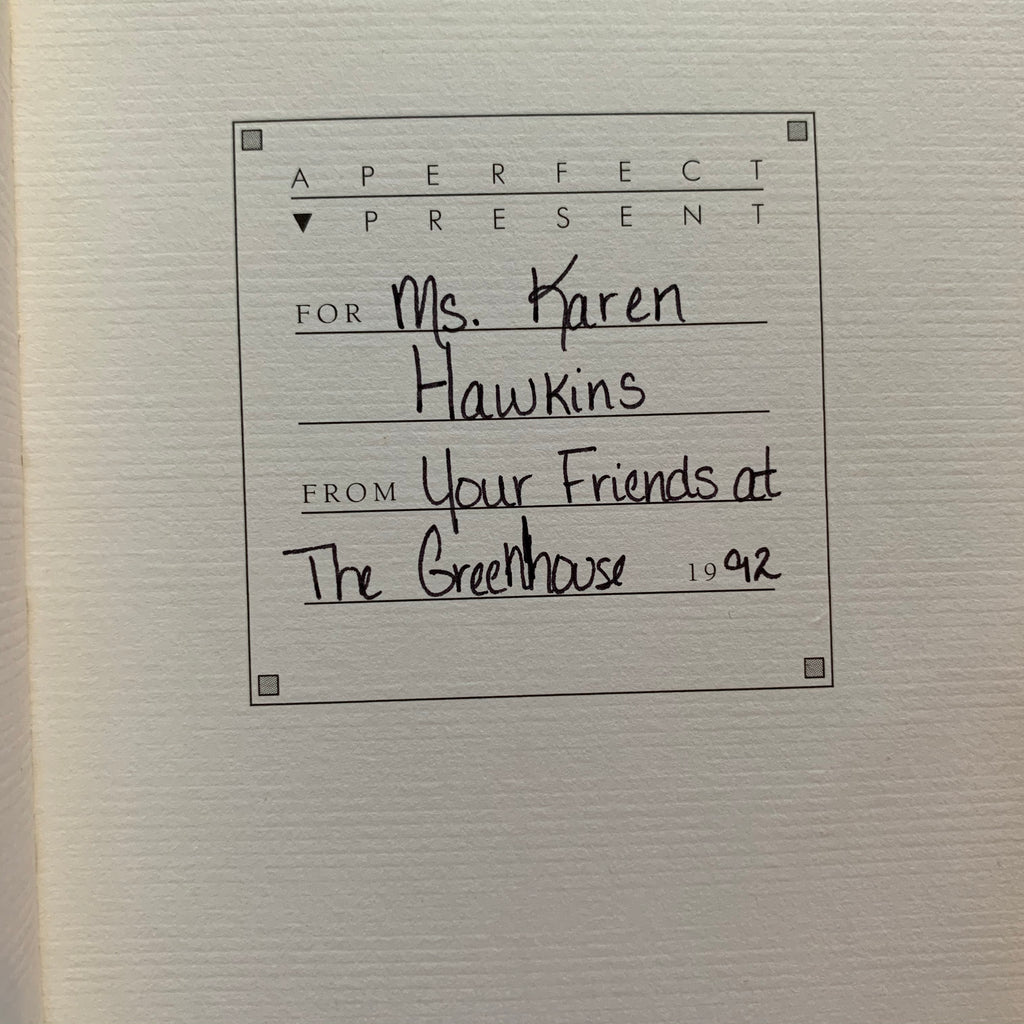 A PERFECT
▼ PRESENT
FOR Ms. Karen
Hawkins
FROM Your Friends at
The Greenhouse 1992